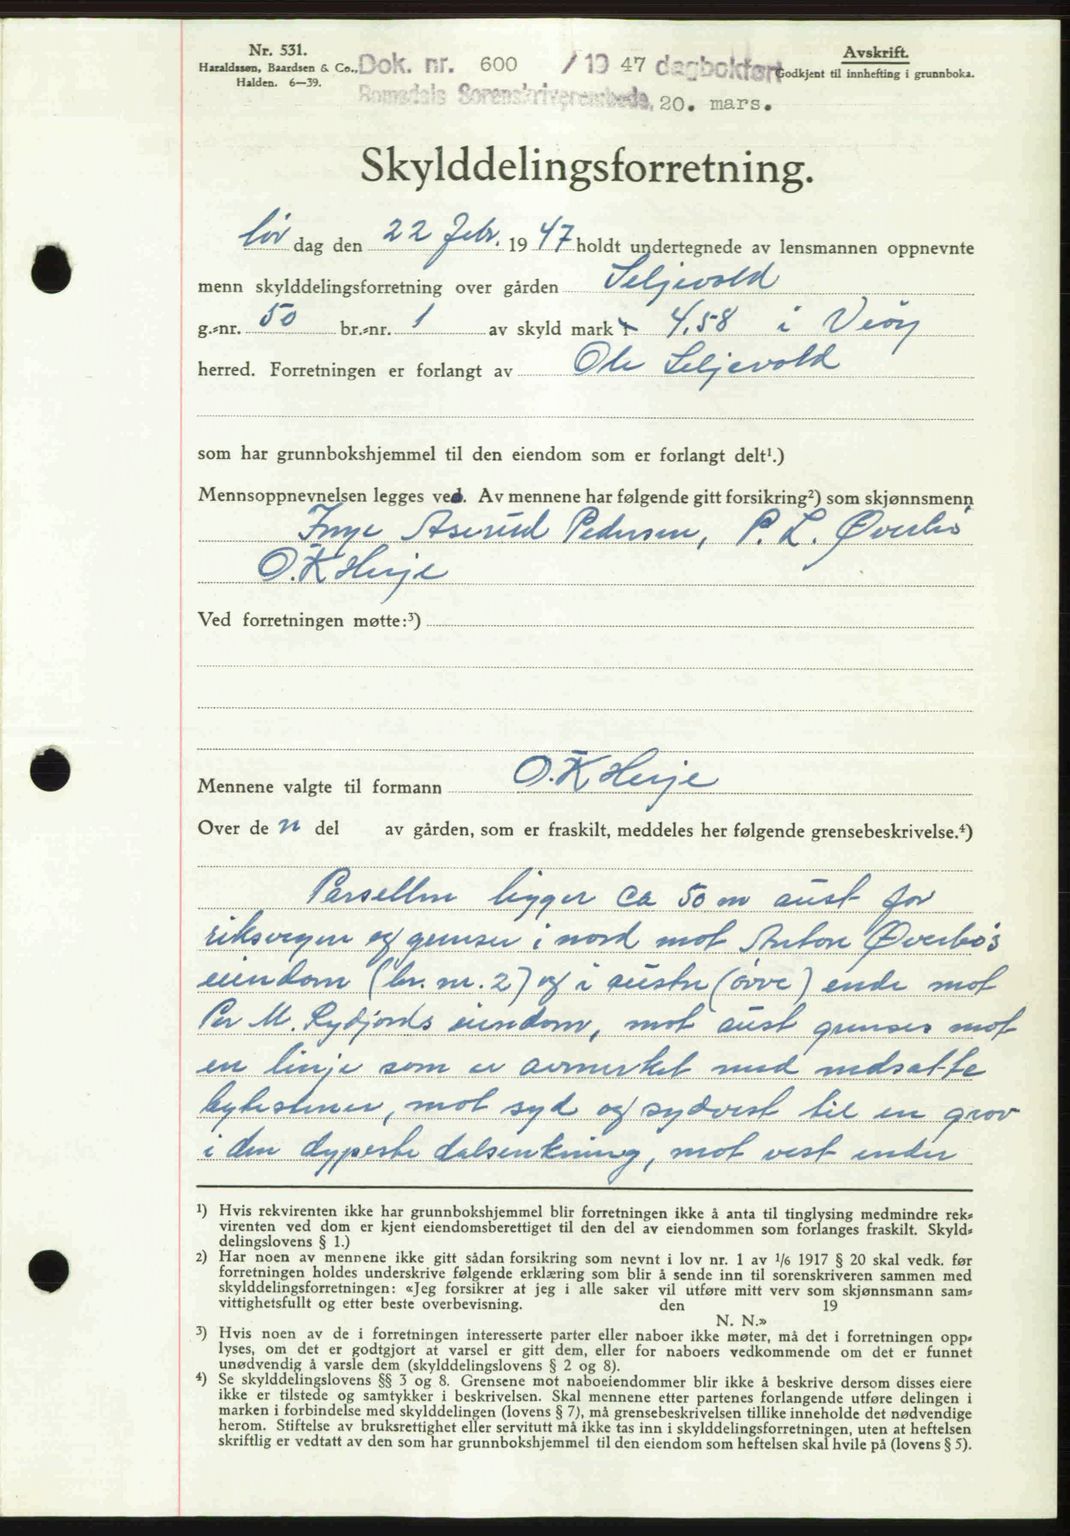 Nr. 531.
Haraldssøn, Baardsen & Co.,
Halden. 6—39.
Dok. nr. 600 / 19 47 dagbokført
Romsdals Sorenskriverembede, 20. mars.
Avskrift.
Godkjent til innhefting i grunnboka.
Skylddelingsforretning.
lør dag den 22 febr. 19 47 holdt undertegnede av lensmannen oppnevnte
menn skylddelingsforretning over gården Seljevold
g.-nr. 50 br.-nr. 1 av skyld mark 4,58 i Veøy
herred. Forretningen er forlangt av Ole Seljevold
som har grunnbokshjemmel til den eiendom som er forlangt delt¹.)
Mennsoppnevnelsen legges ved. Av mennene har følgende gitt forsikring²) som skjønnsmenn
Inge Aserud Pedersen, P. L. Øverbø
O. K Herje
Ved forretningen møtte:³)
Mennene valgte til formann O. K Herje
Over de n del av gården, som er fraskilt, meddeles her følgende grensebeskrivelse.⁴)
Parsellen ligger ca 50 m aust for
riksvegen og grenser i nord mot Anton Øverbø's
eiendom (br. nr. 2) og i austre (øvre) ende mot
Per M. Rydjords eiendom, mot aust grenses mot
en linje som er avmerket med nedsatte
bytesteiner, mot syd og sydvest til en grov
i den dypeste dalsenkning, mot vest ender
¹) Hvis rekvirenten ikke har grunnbokshjemmel blir forretningen ikke å anta til tinglysing medmindre rek-
virenten ved dom er kjent eiendomsberettiget til den del av eiendommen som forlanges fraskilt. Skyld-
delingslovens § 1.)
²) Har noen av mennene ikke gitt sådan forsikring som nevnt i lov nr. 1 av 1/6 1917 § 20 skal vedk. før
forretningen holdes underskrive følgende erklæring som blir å sende inn til sorenskriveren sammen med
skylddelingsforretningen: «Jeg forsikrer at jeg i alle saker vil utføre mitt verv som skjønnsmann sam-
vittighetsfullt og etter beste overbevisning. den 19
N. N.»
³) Hvis noen av de i forretningen interesserte parter eller naboer ikke møter, må det i forretningen opp-
lyses, om det er godtgjort at varsel er gitt dem, eller for naboers vedkommende om det er funnet
unødvendig å varsle dem (skylddelingslovens § 2 og 8).
⁴) Se skylddelingslovens §§ 3 og 8. Grensene mot naboeiendommer blir ikke å beskrive dersom disses eiere
ikke er tilstede og samtykker i beskrivelsen. Skal mennene etter partenes forlangende utføre delingen i
marken i forbindelse med skylddelingen (lovens § 7), må grensebeskrivelsen tillike inneholde det nødvendige
herom. Stiftelse av bruksrettighet eller servitutt må ikke tas inn i skylddelingsforretningen, uten at heftelsen
skriftlig er vedtatt av den som har grunnbokshjemmel til den eiendom som heftelsen skal hvile på (lovens § 5).